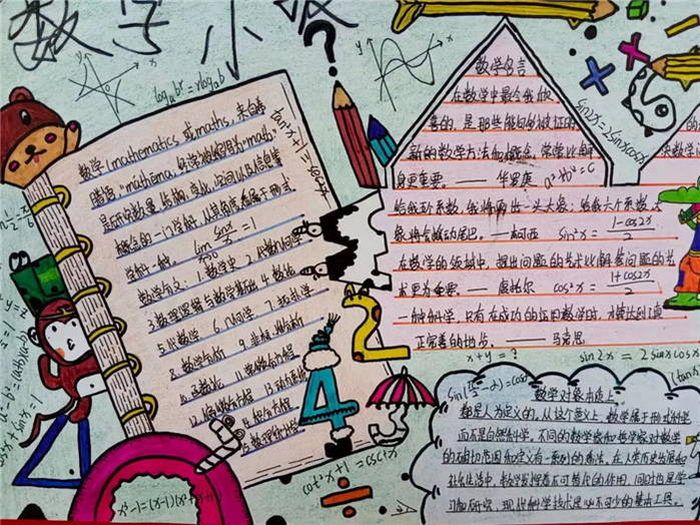 数学小报
log_a b^x = xlog_a b
tan²x+1=sec²x
数学(mathematics 或 maths, 来自希
腊语,"máthēma",经常被缩写为"math"
是研究数量、结构、变化、空间以及信息等
概念的一门学科,从某角度看属于形式
科学的一种。 lim sinx/x =1
数学分支: 1.数学史 2.
3.数理逻辑与数学基础 4.数论
5.代数学 6.几何学 7.拓扑学
8.数学分析 9.非标准分析
10.函数论 11.常微分方程
12.偏微分方程 13.动力系统
14.积分方程
cot²x+1=csc²x
x³-1=(x-1)(x²+x+1)
a²-b²=(a+b)(a-b)
数学名言
在数学中最令我欣
喜的,是那些能够被证明
新的数学方法和概念,常常比解
身更重要。——华罗庚 a²+b²=c
给我五个系数,我将画出一头大象;给我六个系数,大
象将会摇动尾巴。——柯西 sin²x= 1-cos2x/2
在数学的领域中,提出问题的艺术比解答问题的艺
术更为重要。——康扥尔 cos²x= 1+cos2x/2
一种科学,只有在成功的运用数学时,才算达到了真
正完善的地步。——马克思
sin2x=2sinxcosx
x+y=?
sin2x = 2sinxcosx
sin(π/2-x)=cos
(tanx
数学对象本质上
都是人为定义的,从这个意义上,数学属于形式科学
而不是自然科学。不同的数学家和哲学家对数学
的确切范围和定义有一系列的看法。在人类历史发展和
社会生活中,数学发挥着不可替代的作用,同时也是学
习和研究,现代科学技术是必不可少的基本工具。